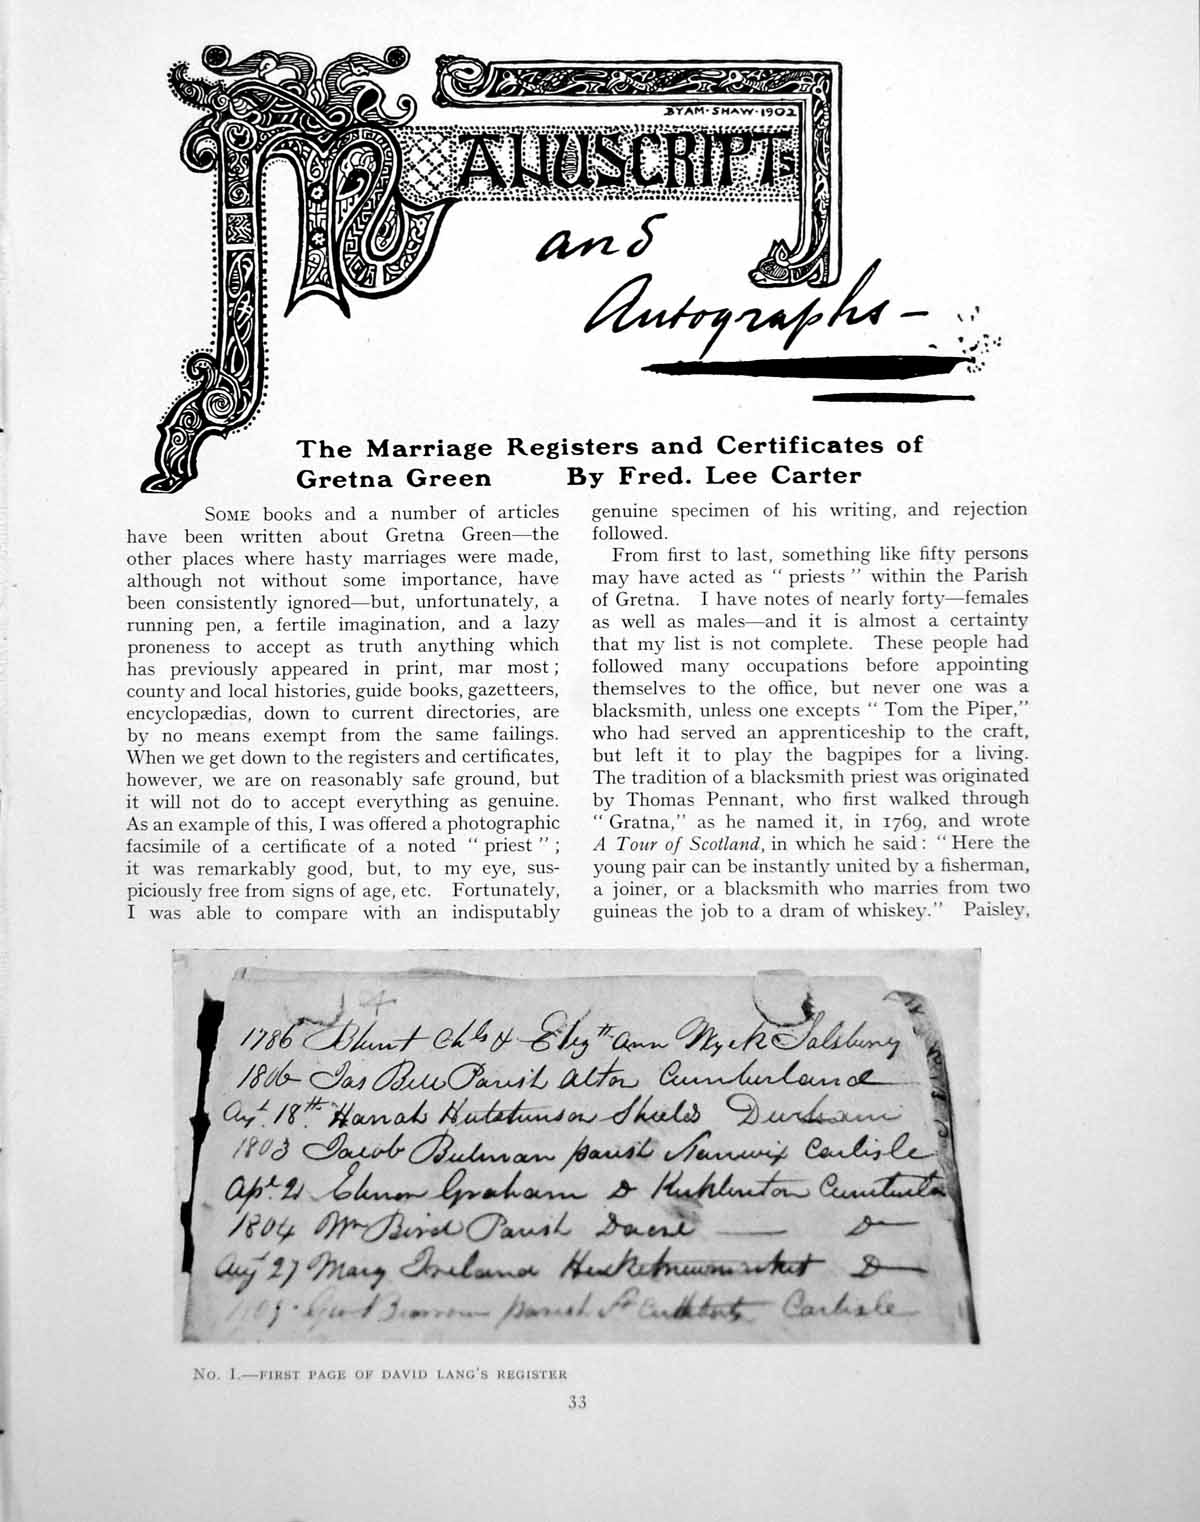 BYAM·SHAW·1902
MANUSCRIPTS
and
Autographs—
The Marriage Registers and Certificates of
Gretna Green By Fred. Lee Carter
SOME books and a number of articles
have been written about Gretna Green—the
other places where hasty marriages were made,
although not without some importance, have
been consistently ignored—but, unfortunately, a
running pen, a fertile imagination, and a lazy
proneness to accept as truth anything which
has previously appeared in print, mar most;
county and local histories, guide books, gazetteers,
encyclopædias, down to current directories, are
by no means exempt from the same failings.
When we get down to the registers and certificates,
however, we are on reasonably safe ground, but
it will not do to accept everything as genuine.
As an example of this, I was offered a photographic
facsimile of a certificate of a noted "priest";
it was remarkably good, but, to my eye, sus-
piciously free from signs of age, etc. Fortunately,
I was able to compare with an indisputably
genuine specimen of his writing, and rejection
followed.
From first to last, something like fifty persons
may have acted as "priests" within the Parish
of Gretna. I have notes of nearly forty—females
as well as males—and it is almost a certainty
that my list is not complete. These people had
followed many occupations before appointing
themselves to the office, but never one was a
blacksmith, unless one excepts "Tom the Piper,"
who had served an apprenticeship to the craft,
but left it to play the bagpipes for a living.
The tradition of a blacksmith priest was originated
by Thomas Pennant, who first walked through
"Gratna," as he named it, in 1769, and wrote
A Tour of Scotland, in which he said: "Here the
young pair can be instantly united by a fisherman,
a joiner, or a blacksmith who marries from two
guineas the job to a dram of whiskey." Paisley,
1786 Blunt Chls & Elizth Ann Wyck Salsbury
1806 Jas Bell Parish Alton Cumberland
Augt. 18th. Hanah Hutchinson Shields Durham
1803 Jacob Bulman parish Stanwix Carlisle
Apl. 21 Elenor Graham D Kirklinton
1804 Wm Bird Parish Dacre — D—
Augt 27 Mary Ireland Hesketnewmarket D—
parish St Cuthberts Carlisle
NO. I.—FIRST PAGE OF DAVID LANG'S REGISTER
33